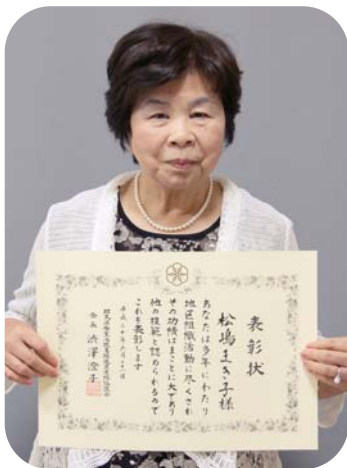 表彰状
松嶋まき子様
あなたは多年にわたり
地区組織活動に尽くされ
その功績はまことに大であり
他の模範と認められるので
これを表彰します
会長 渋澤澄子